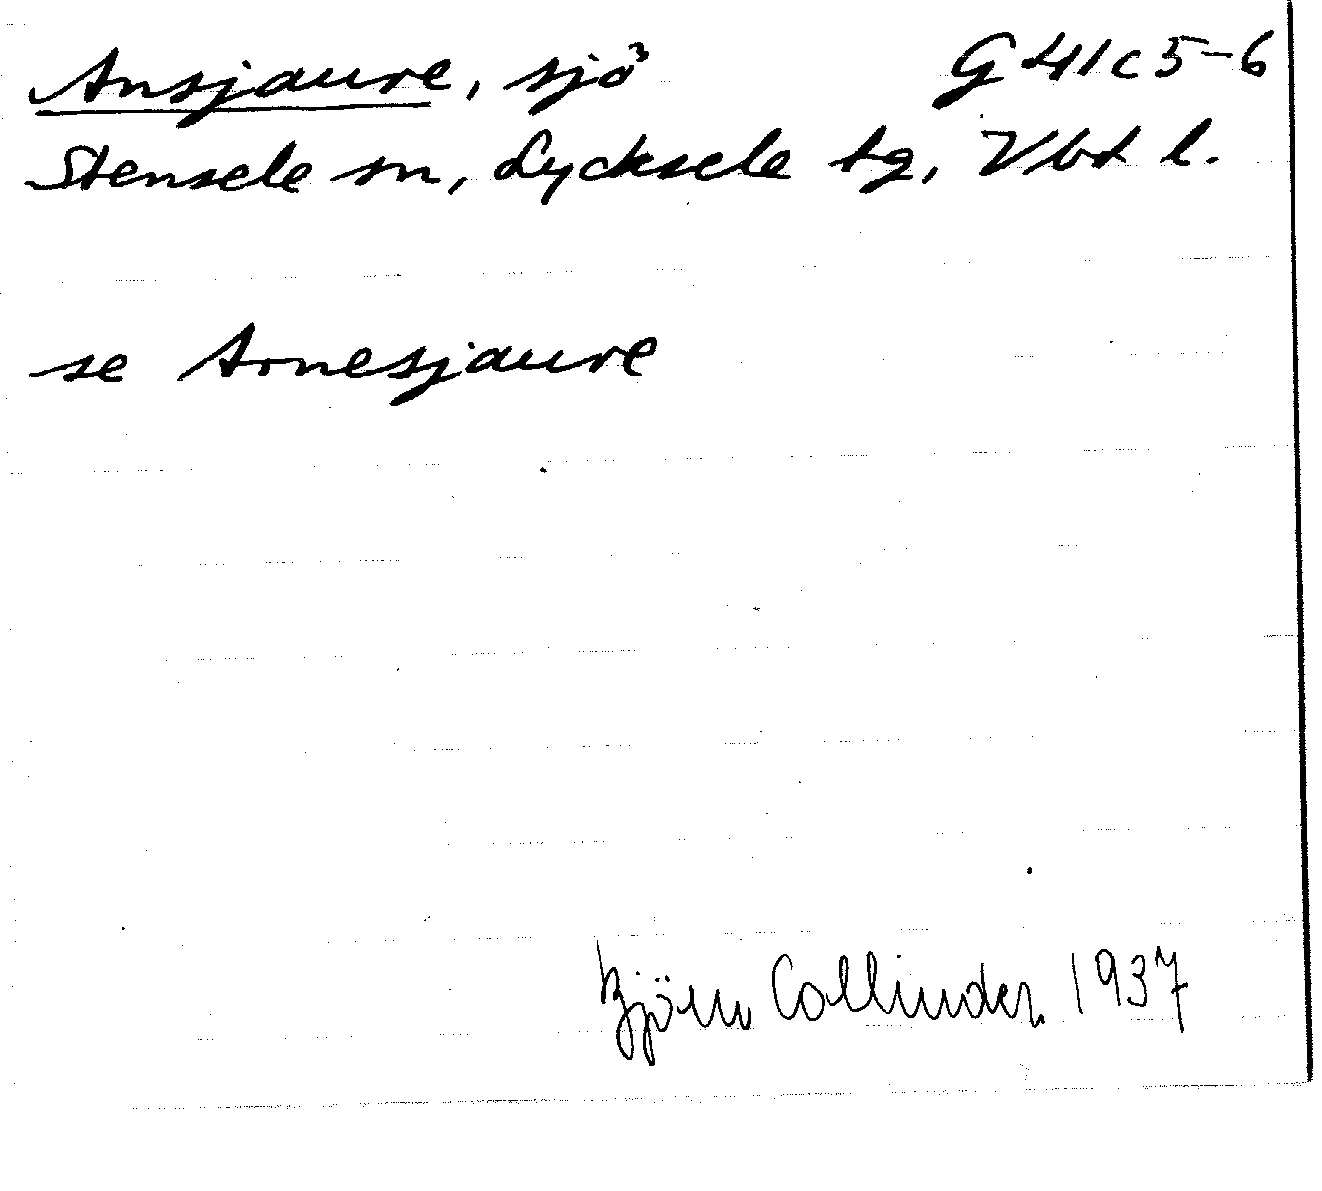 Ansjaure, sjö G 41 c 5-6
Stensele sn, Lycksele tg, Vbt l.
se Arnesjaure
Björn Collinder 1937